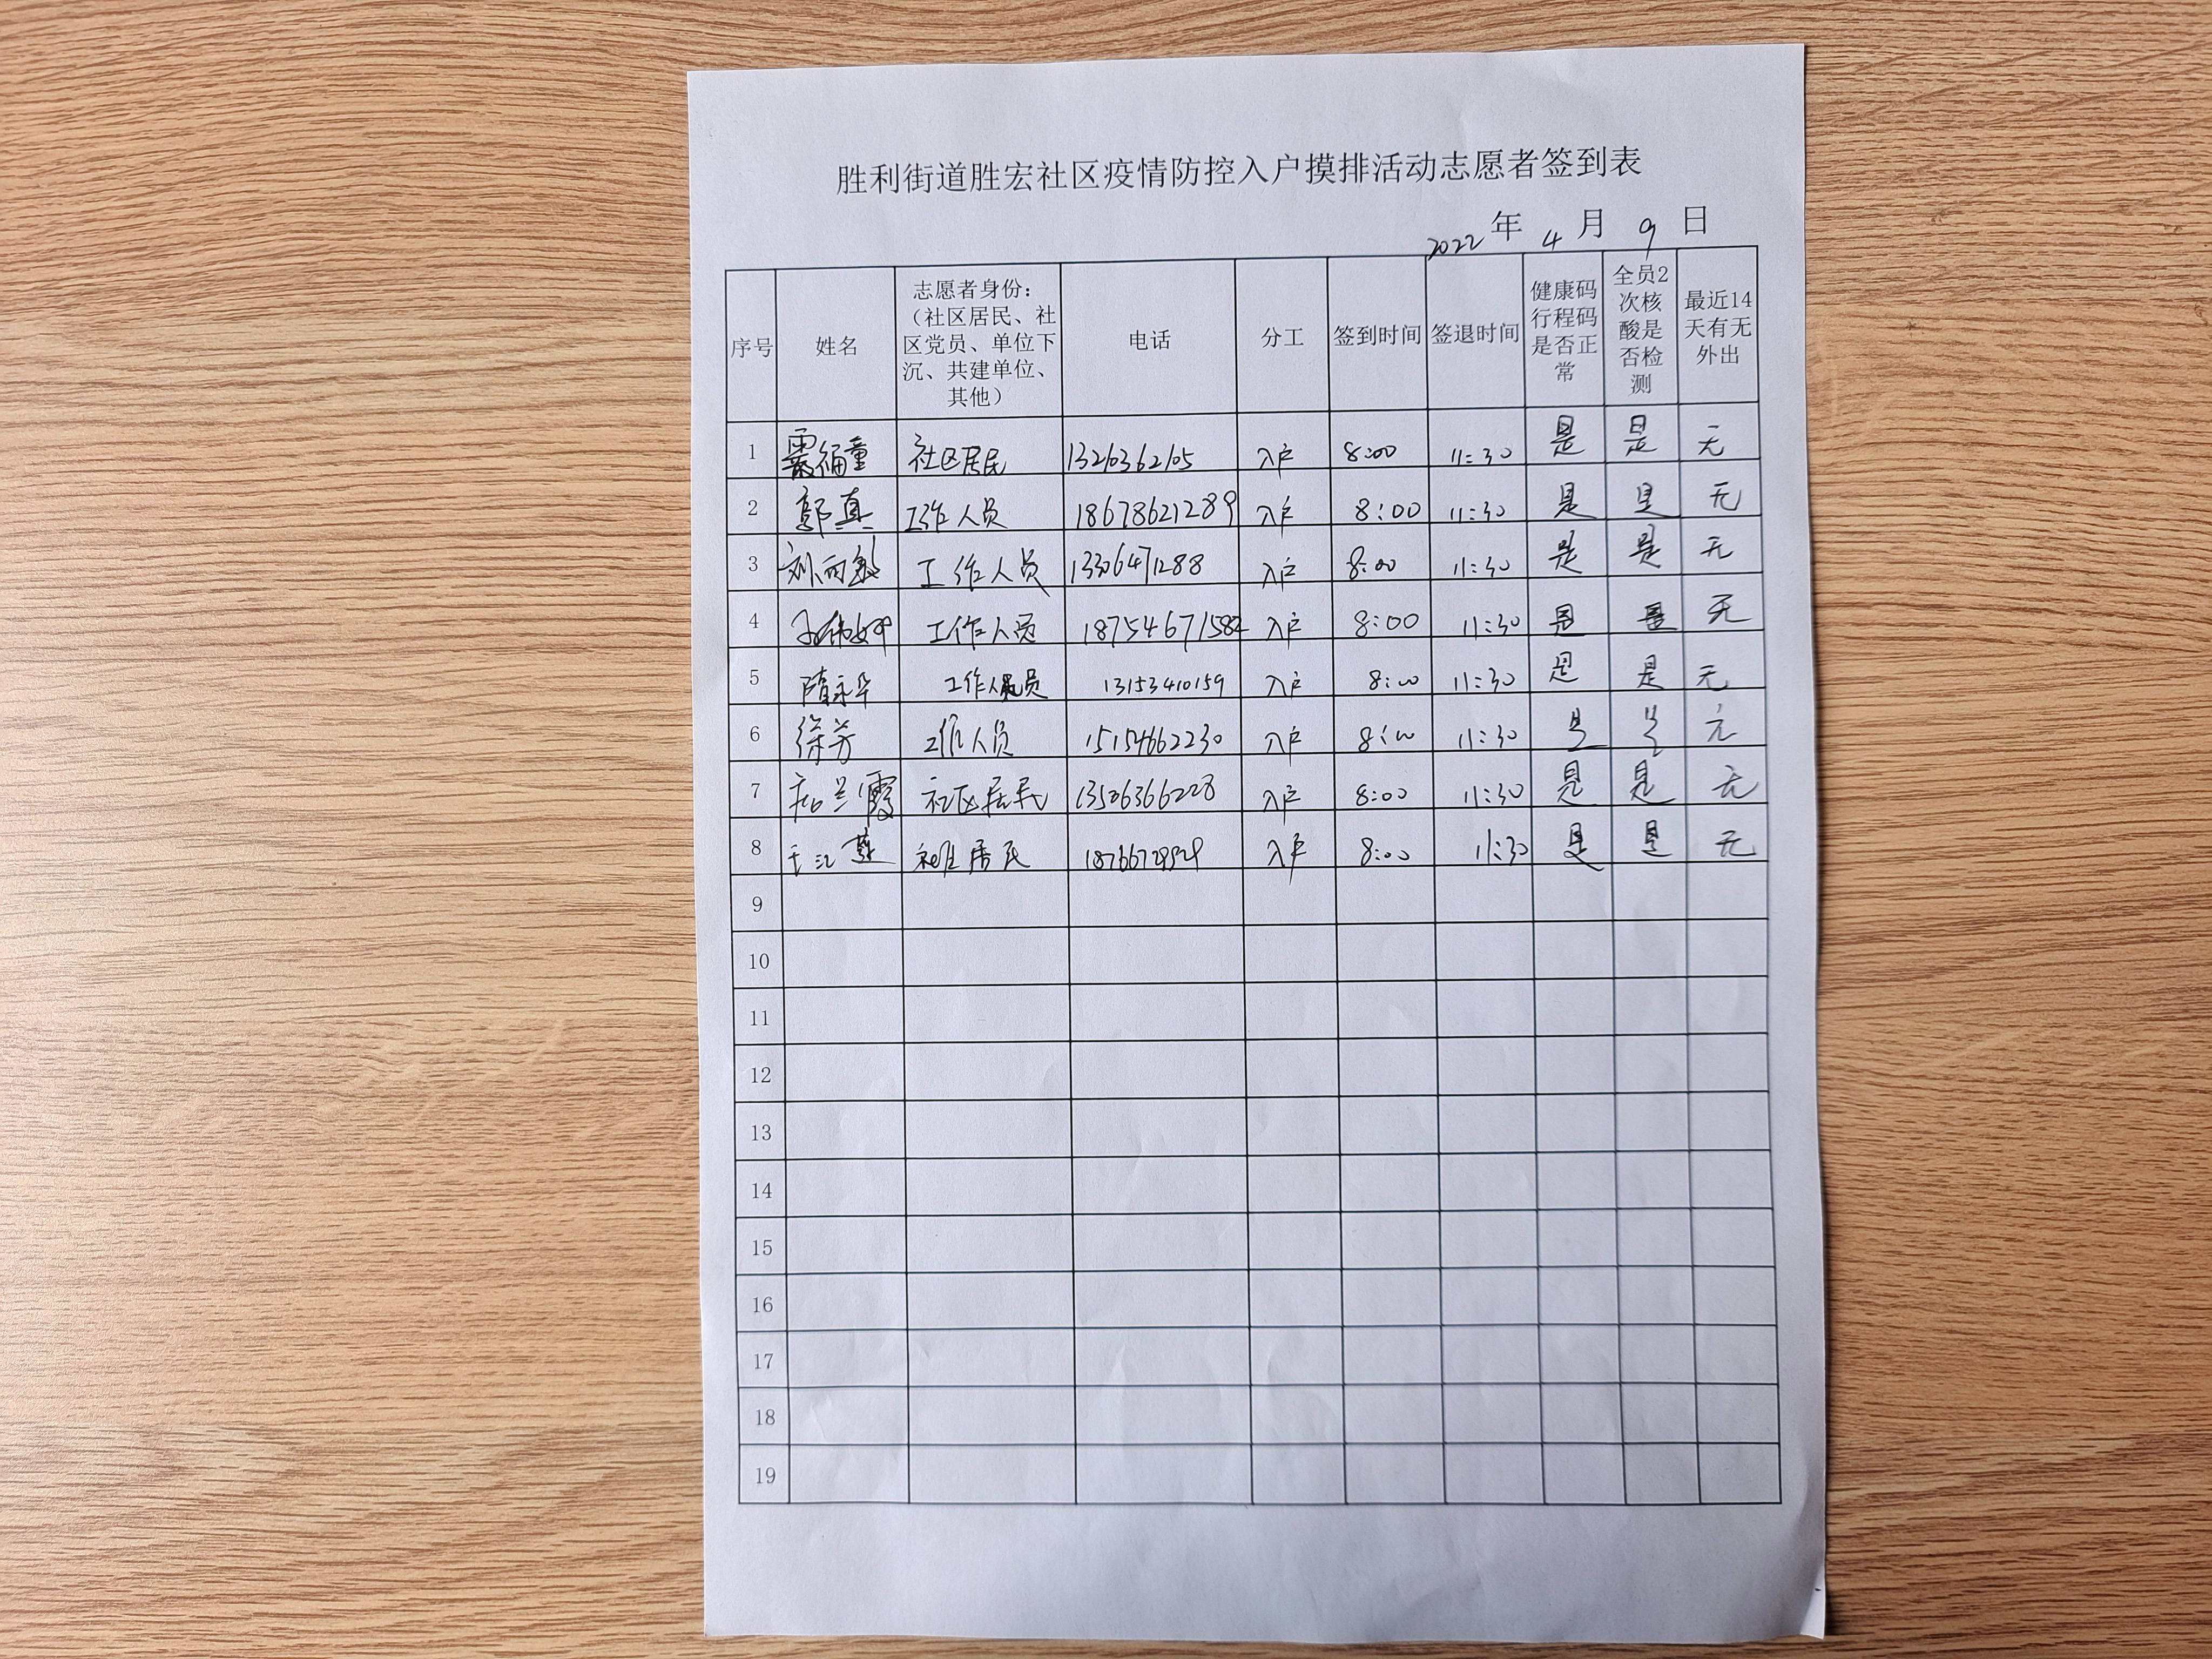 胜利街道胜宏社区疫情防控入户摸排活动志愿者签到表
2022 年 4 月 9 日
序号 姓名 志愿者身份：（社区居民、社区党员、单位下沉、共建单位、其他） 电话 分工 签到时间 签退时间 健康码行程码是否正常 全员2次核酸是否检测 最近14天有无外出
1 福童 社区居民 入户 8:00 11:30 是 是 无
2 郭真 工作人员 18678621289 入户 8:00 11:30 是 是 无
3 刘雨 工作人员 13306471288 入户 8:00 11:30 是 是 无
4 工作人员 18754671582 入户 8:00 11:30 是 是 无
5 隋永华 工作人员 13153410159 入户 8:00 11:30 是 是 无
6 徐芳 工作人员 15154662230 入户 8:00 11:30 是 是 无
7 兰霞 社区居民 13506366228 入户 8:00 11:30 是 是 无
8 社区居民 入户 8:00 11:30 是 是 无
9
10
11
12
13
14
15
16
17
18
19